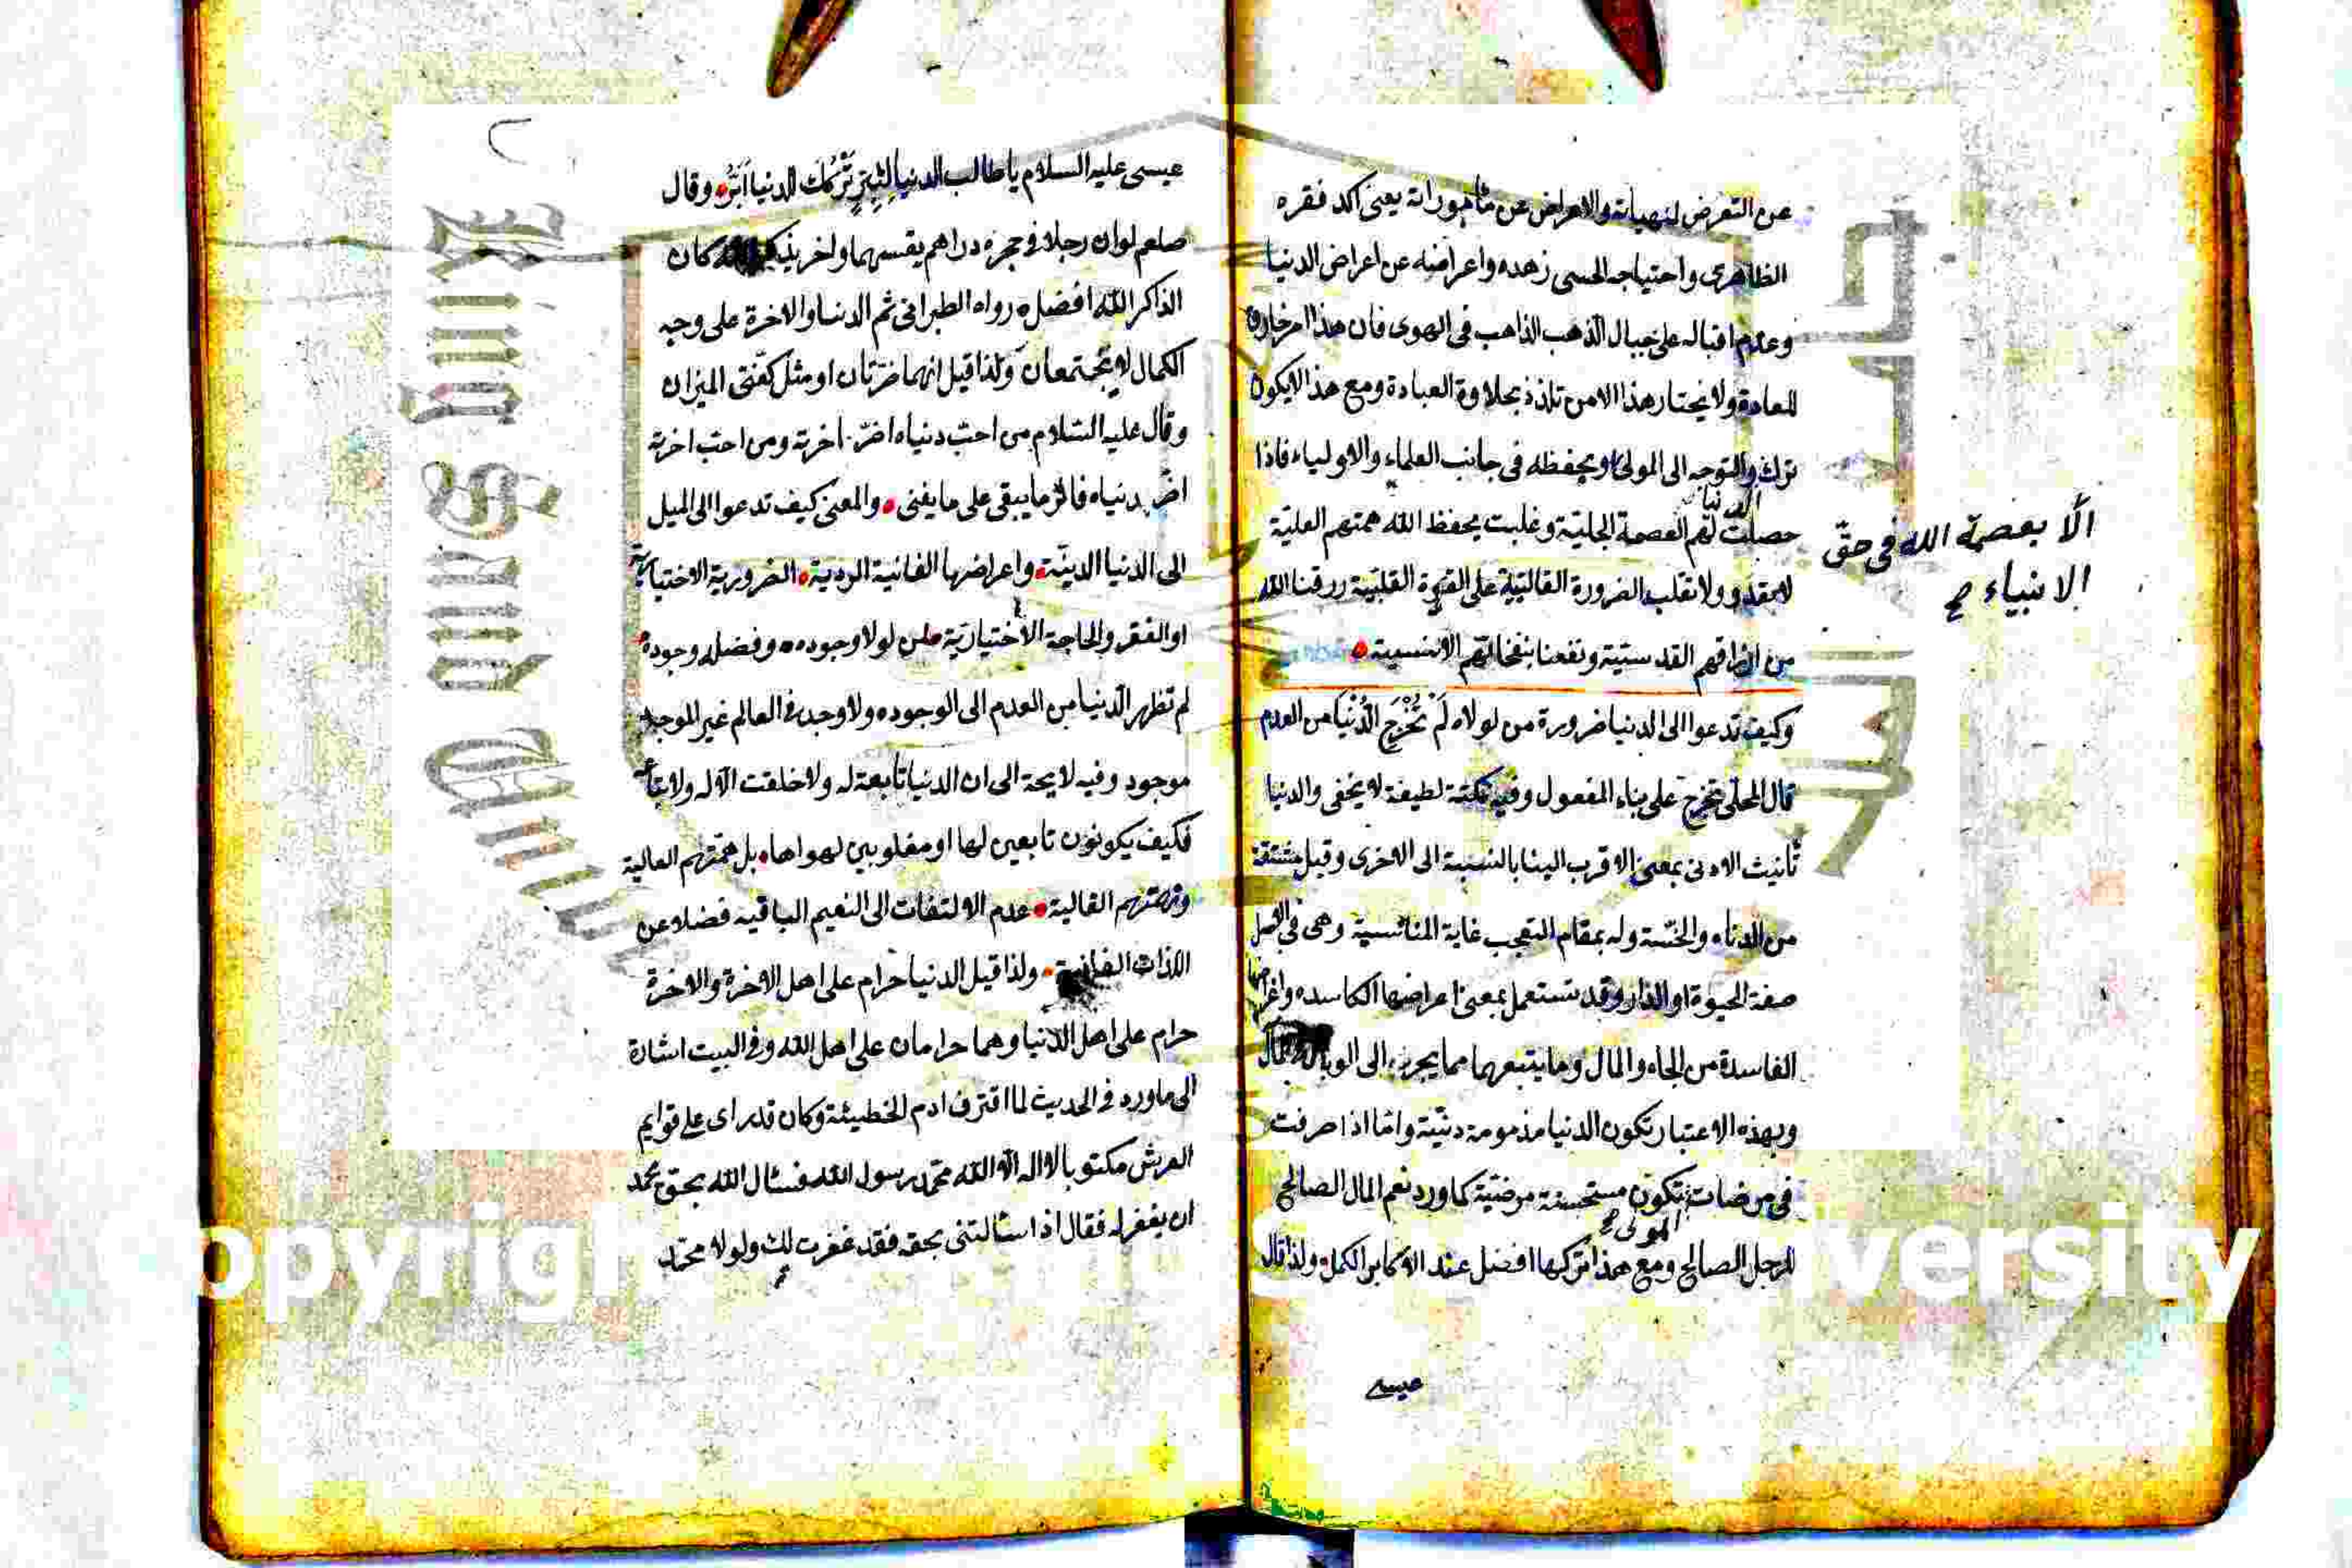 عن التعرض لمنهياته والاعراض عن مأموراته يعنى اكد فقره
الظاهرى واحتياجه الحسى زهده واعراضه عن اعراض الدنيا
وعدم اقباله على جبال الذهب الذاهب فى الهوى فان هذا امر خارق
للعادة ولا يختار هذا الا من تلذذ بحلاوة العبادة ومع هذا لا يكون
ترك والتوجه الى المولى ويحفظه فى جانب العلماء والاولياء فاذا
الدنيا
حصلت لهم العصمة الجليّة وغلبت بحفظ الله همتهم العليّة
الّا بعصمة الله فى حقّ
الانبياء صح
ولا تغلب الضرورة القالبيّة على القوة القلبيّة رزقنا الله
من القدسيّة ونفعنا بنفحاتهم الانسية
وكيف تدعوا الى الدنيا ضرورة من لولاه لَمْ تُخْرَجِ الدُّنْيَا من العدم
قال المحلّى تخرج على بناء المفعول وفيه نكتة لطيفة لا يخفى والدنيا
تأنيث الادنى بمعنى الاقرب الينا بالنسبة الى الاخرى وقيل مشتقة
من الدناءة والخسّة وله بمقام التعجب غاية المناسبة وهى فى الاصل
صفة الحيوة او الدار وقد تستعمل بمعنى اعراضها الكاسده واغراضها
الفاسدة من الجاه والمال وما يتبعهما مما يجر الى الوبال
وبهذه الاعتبار تكون الدنيا مذمومة دنيّة وامّا اذا صرفت
فى مرضات تكون مستحسنة مرضيّة كما ورد نعم المال الصالح
المولى صح
للرجل الصالح ومع هذا تركها افضل عند الاكابر الكمل ولذا قال
عيسى
عيسى عليه السلام يا طالب الدنيا لِتَبَرَّ تَرْكُكَ الدنيا اَبَرُّ وقال
صلعم لو ان رجلا فى حجره دراهم يقسمها واخر يذكر كان
الذاكر لله افضل رواه الطبرانى ثم الدنيا والاخرة على وجه
الكمال لا يجتمعان ولذا قيل انهما ضرّتان او مثل كفّتى الميزان
وقال عليه السّلام من احبّ دنياه اضرّ اخرته ومن احبّ اخرته
اضرّ دنياه فاثر ما يبقى على ما يفنى والمعنى كيف تدعوا الى الميل
الى الدنيا الدينّة واعراضها الفانية الردية الضرورية الاختيارية
او الفقر والحاجة الاختياريّة من لولا وجوده وفضله وجوده
لم تظهر الدّنيا من العدم الى الوجود ولا وجد فى العالم غير الموجد
موجود وفيه لايحة الى ان الدنيا تابعة له ولا خلقت الّا له
فكيف يكونون تابعين لها او مغلوبين لهواها بل همّتهم العالية
ونهمتهم الغالية عدم الالتفات الى النعيم الباقيه فضلا عن
اللذات الفانية ولذا قيل الدنيا حرام على اهل الاخرة والاخرة
حرام على اهل الدّنيا وهما حرامان على اهل الله وفى البيت اشارة
الى ما ورد فى الحديث لما اقترف ادم الخطيئة وكان قد راى على قوايم
العرش مكتوبا لا اله الّا الله محمّد رسول الله فسئال الله بحق محمد
ان يغفر له فقال اذا سئالتنى بحقه فقد غفرت لك ولولا محمّد